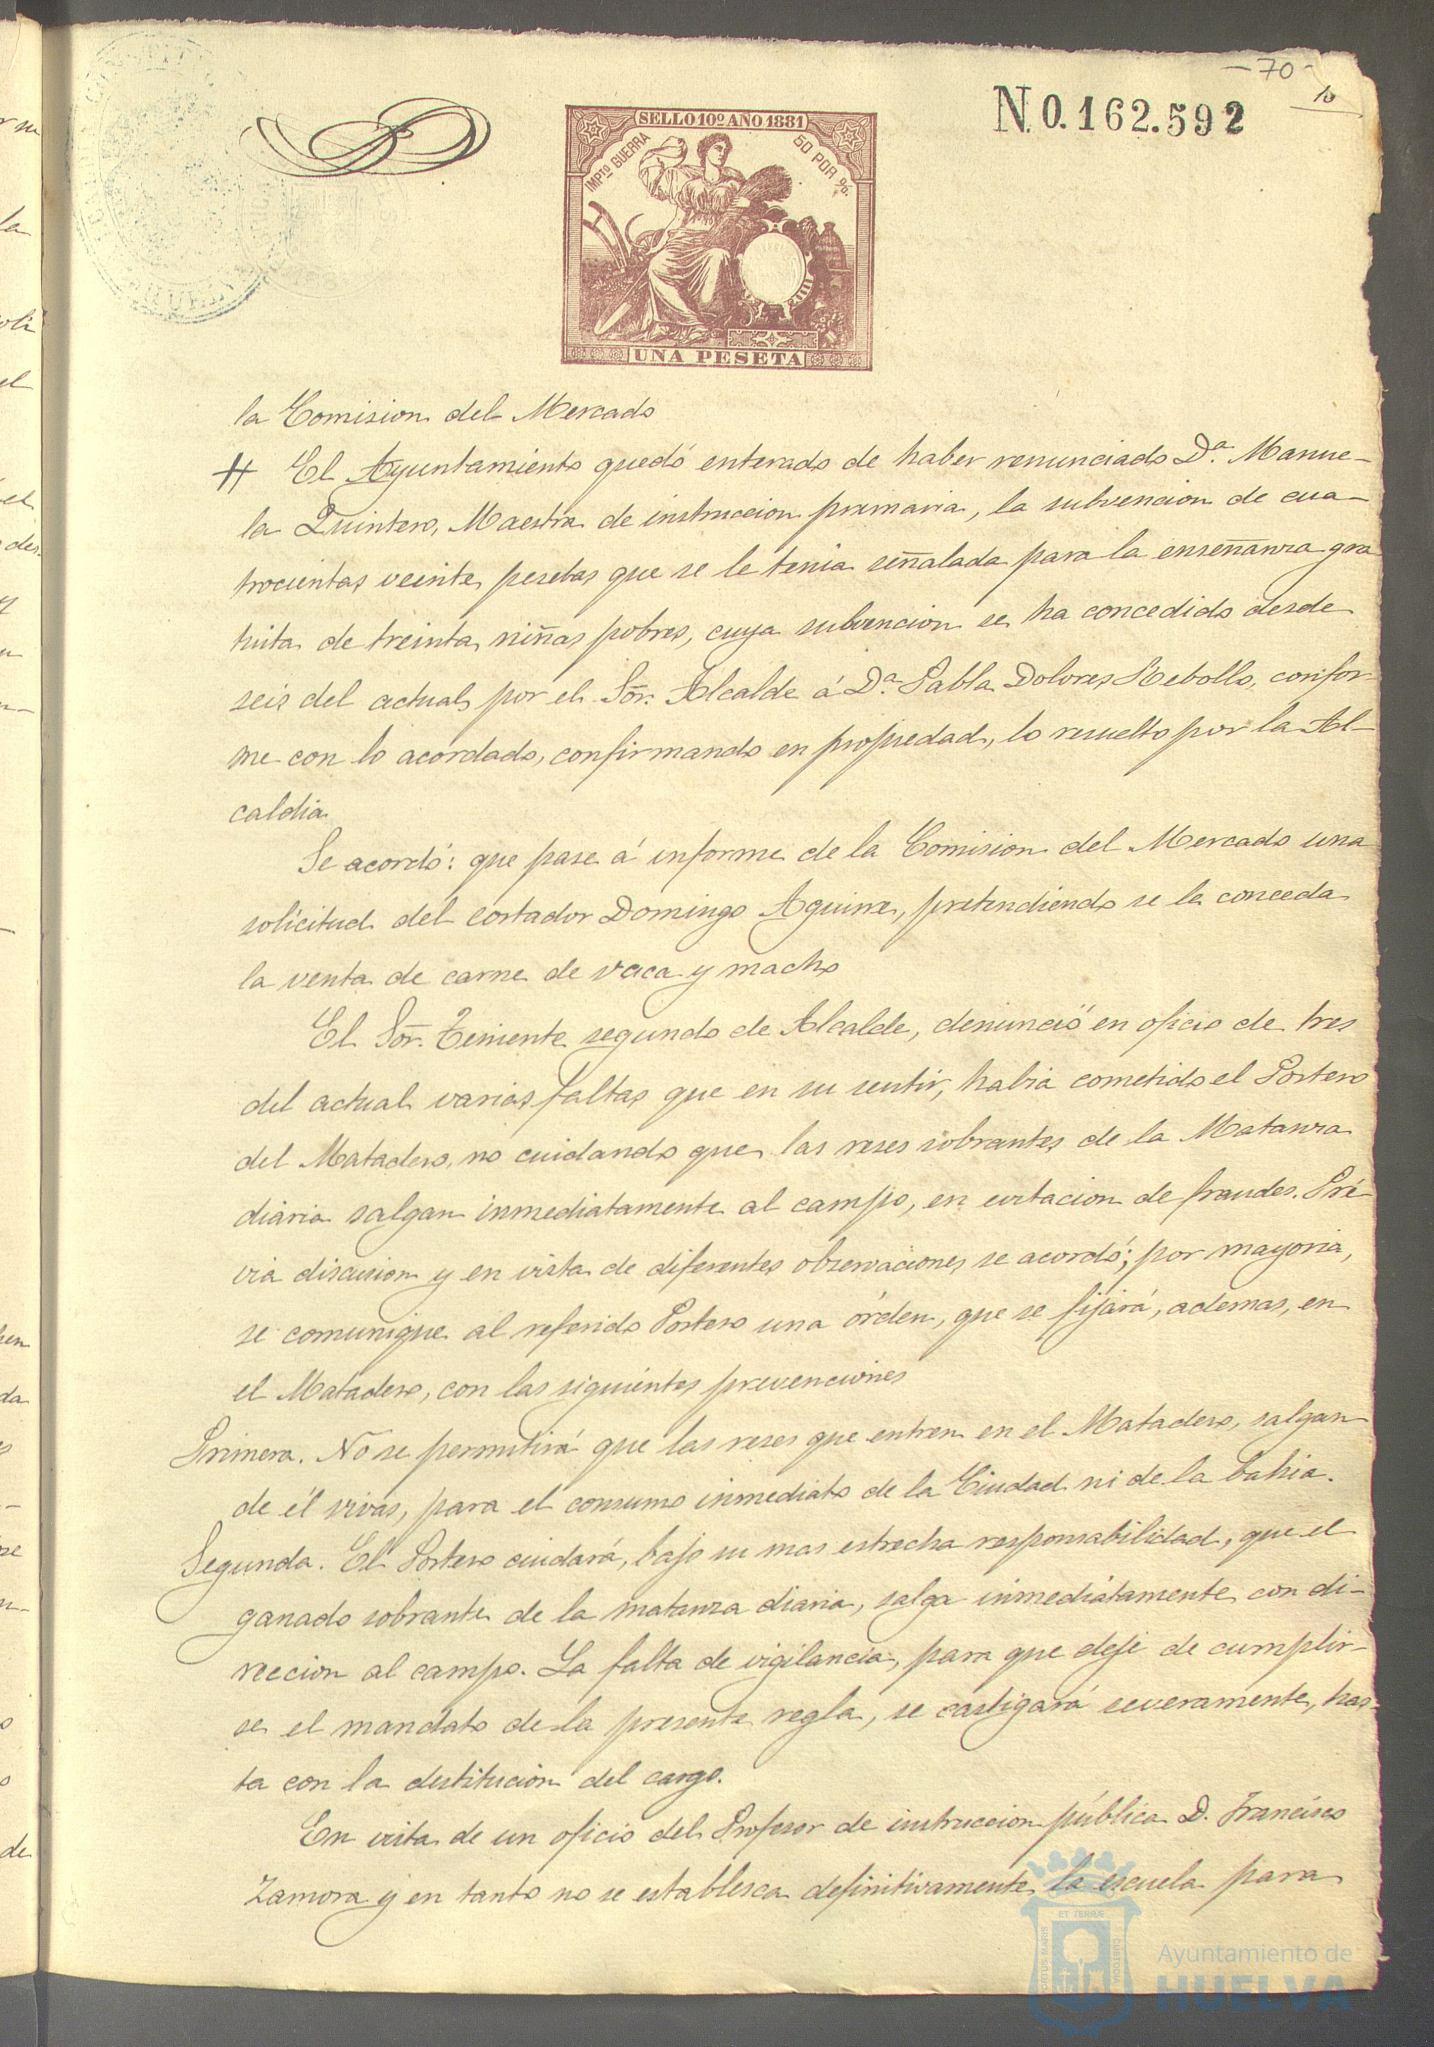 -70-
10
N.0.162.592
SELLO 10º AÑO 1881
IMPTO GUERRA
50 POR %.
UNA PESETA
la Comision del Mercado
El Ayuntamiento quedó enterado de haber renunciado D.ª Manue-
la Quintero, Maestra de instruccion primaria, la subvencion de cua-
trocientas veinte pesetas que se le tenia señalada para la enseñanza gra
tuita de treinta niñas pobres, cuya subvencion se ha concedido desde
seis del actual por el Sor. Alcalde á D.ª Pabla Dolores Rebollo, confor-
me con lo acordado, confirmando en propiedad, lo resuelto por la Al-
caldia
Se acordó: que pase á informe de la Comision del Mercado una
solicitud del cortador Domingo Aguirre, pretendiendo se le conceda
la venta de carne de vaca y macho
El Sor. Teniente segundo de Alcalde, denunció en oficio de tres
del actual varias faltas que en su sentir, habia cometido el Portero
del Matadero, no cuidando que las reses sobrantes de la Matanza
diaria salgan inmediatamente al campo, en evitacion de fraudes. Pré-
via discusion y en vista de diferentes observaciones se acordó; por mayoria,
se comunique al referido Portero una órden, que se fijará, ademas, en
el Matadero, con las siguientes prevenciones
Primera. No se permitirá que las reses que entren en el Matadero, salgan
de él vivas, para el consumo inmediato de la Ciudad ni de la bahia.
Segunda. El Portero cuidará, bajo su mas estrecha responsabilidad, que el
ganado sobrante de la matanza diaria, salga inmediatamente con di-
reccion al campo. La falta de vigilancia, para que deje de cumplir-
se el mandato de la presente regla, se castigará severamente, has-
ta con la destitucion del cargo.
En vista de un oficio del Profesor de instruccion pública D. Francisco
Zamora y en tanto no se establesca definitivamente la escuela para
Ayuntamiento de
HUELVA